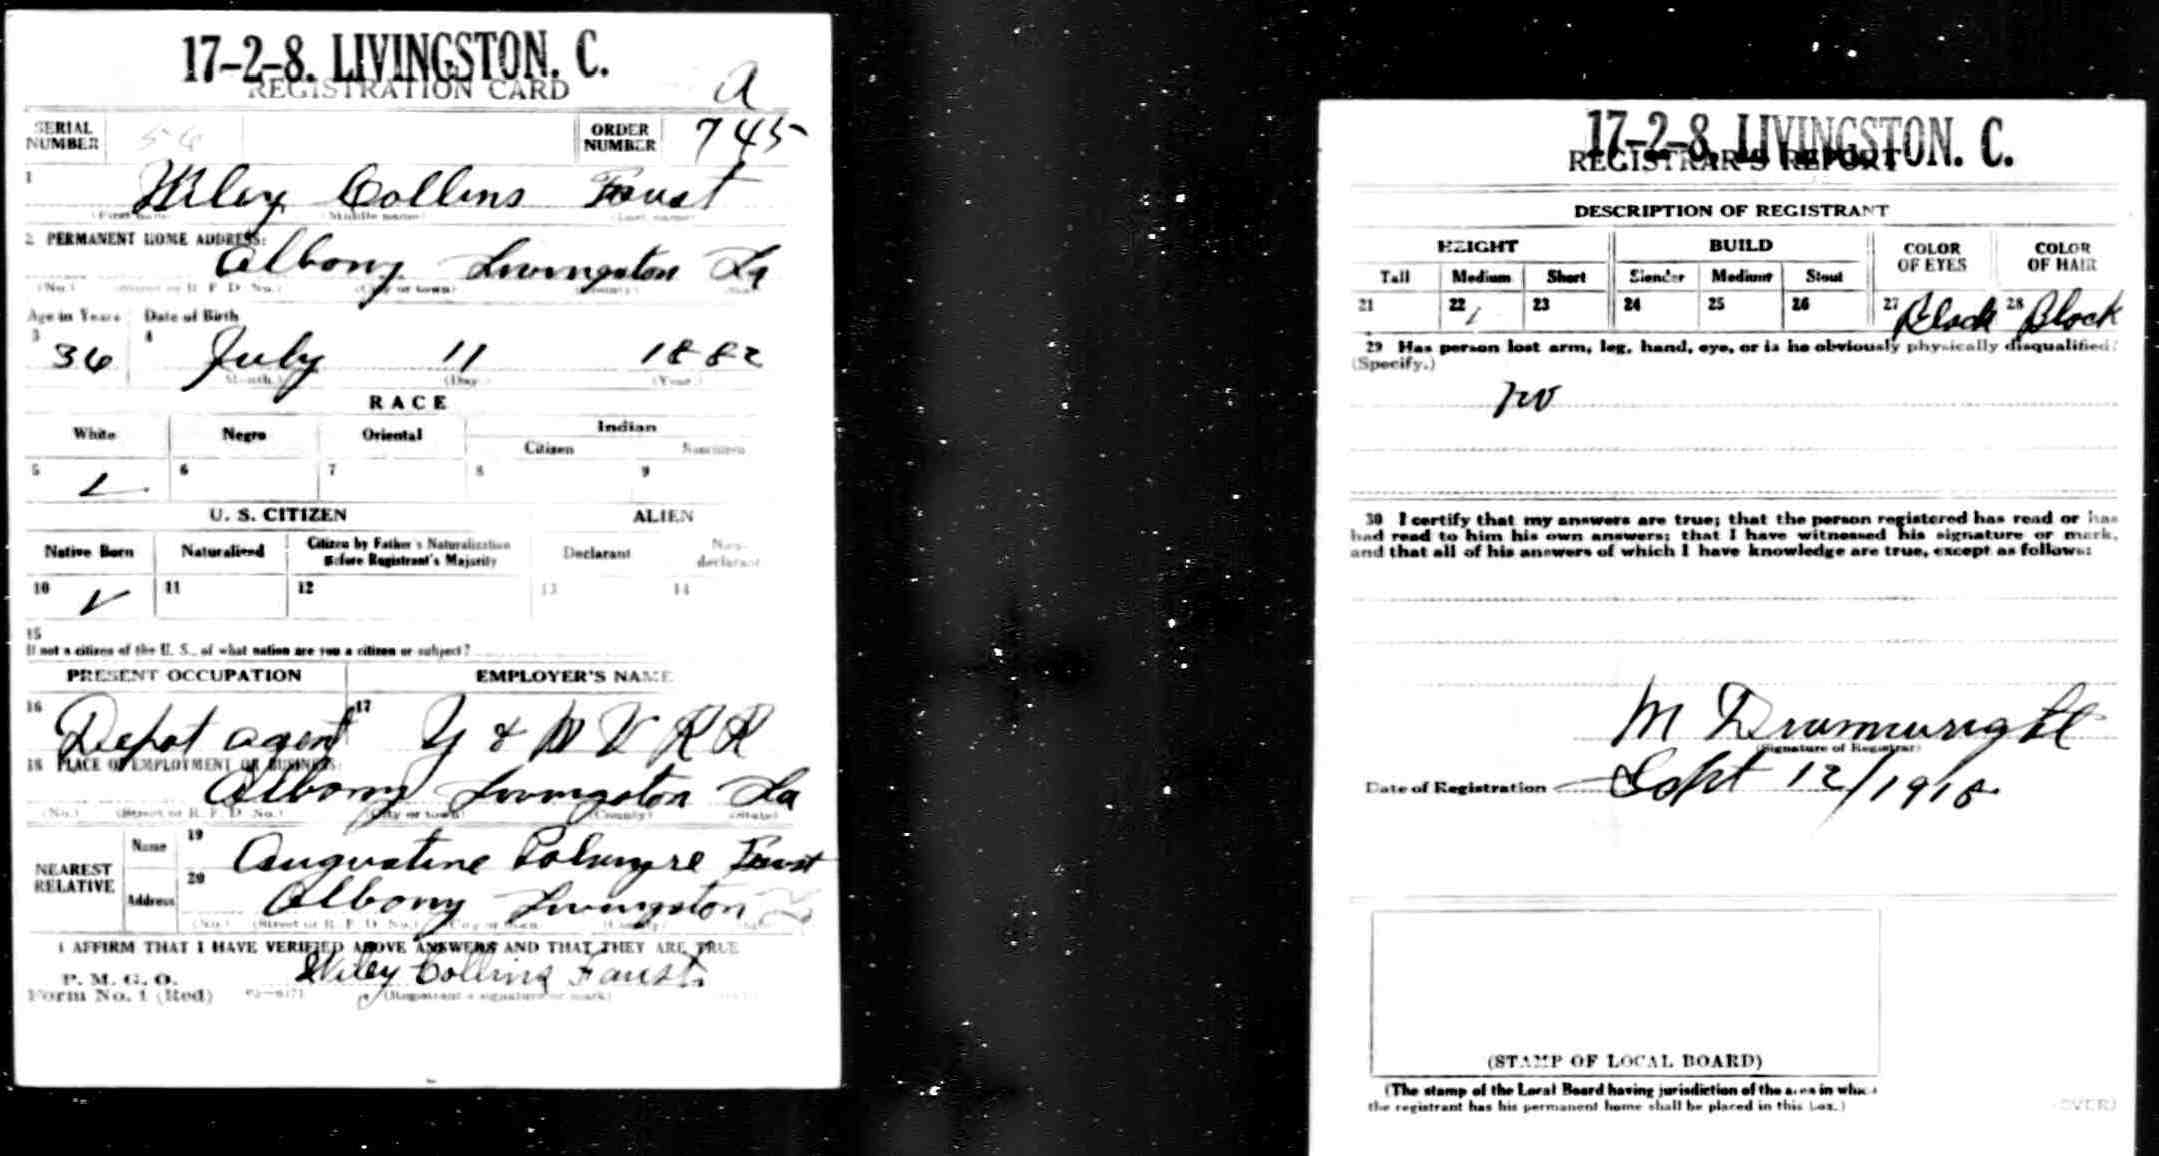 17-2-8. LIVINGSTON. C.
REGISTRATION CARD
A
SERIAL NUMBER 56 ORDER NUMBER 745
1 Wiley Collins Faust
(First name) (Middle name) (Last name)
2 PERMANENT HOME ADDRESS:
Albany Livingston La
(No.) (Street or R. F. D. No.) (City or town) (County) (State)
Age in Years Date of Birth
3 36 4 July 11 1882
(Month.) (Day.) (Year.)
RACE
White Negro Oriental Indian
Citizen Noncitizen
5 6 7 8 9
U. S. CITIZEN ALIEN
Native Born Naturalized Citizen by Father's Naturalization Before Registrant's Majority Declarant Non-declarant
10 ✓ 11 12 13 14
15
If not a citizen of the U. S., of what nation are you a citizen or subject?
PRESENT OCCUPATION EMPLOYER'S NAME
16 Depot agent 17 Y & M V RR
18 PLACE OF EMPLOYMENT OR BUSINESS:
Albany Livingston La
(No.) (Street or R. F. D. No.) (City or town) (County) (State)
NEAREST RELATIVE
Name 19 Augustine Faust
Address 20 Albany Livingston
(No.) (Street or R. F. D. No.) (City or town) (County) (State)
I AFFIRM THAT I HAVE VERIFIED ABOVE ANSWERS AND THAT THEY ARE TRUE
P. M. G. O.
Form No. 1 (Red) Wiley Collins Faust.
(Registrant's signature or mark)
17-2-8. LIVINGSTON. C.
REGISTRAR'S REPORT
DESCRIPTION OF REGISTRANT
HEIGHT BUILD COLOR OF EYES COLOR OF HAIR
Tall Medium Short Slender Medium Stout
21 22 23 24 25 26 27 Black 28 Black
29 Has person lost arm, leg, hand, eye, or is he obviously physically disqualified?
(Specify.)
no
30 I certify that my answers are true; that the person registered has read or has
had read to him his own answers; that I have witnessed his signature or mark,
and that all of his answers of which I have knowledge are true, except as follows:
M Drumwright
(Signature of Registrar)
Date of Registration Sept 12/1918
(STAMP OF LOCAL BOARD)
(The stamp of the Local Board having jurisdiction of the area in which
the registrant has his permanent home shall be placed in this box.)
(OVER)